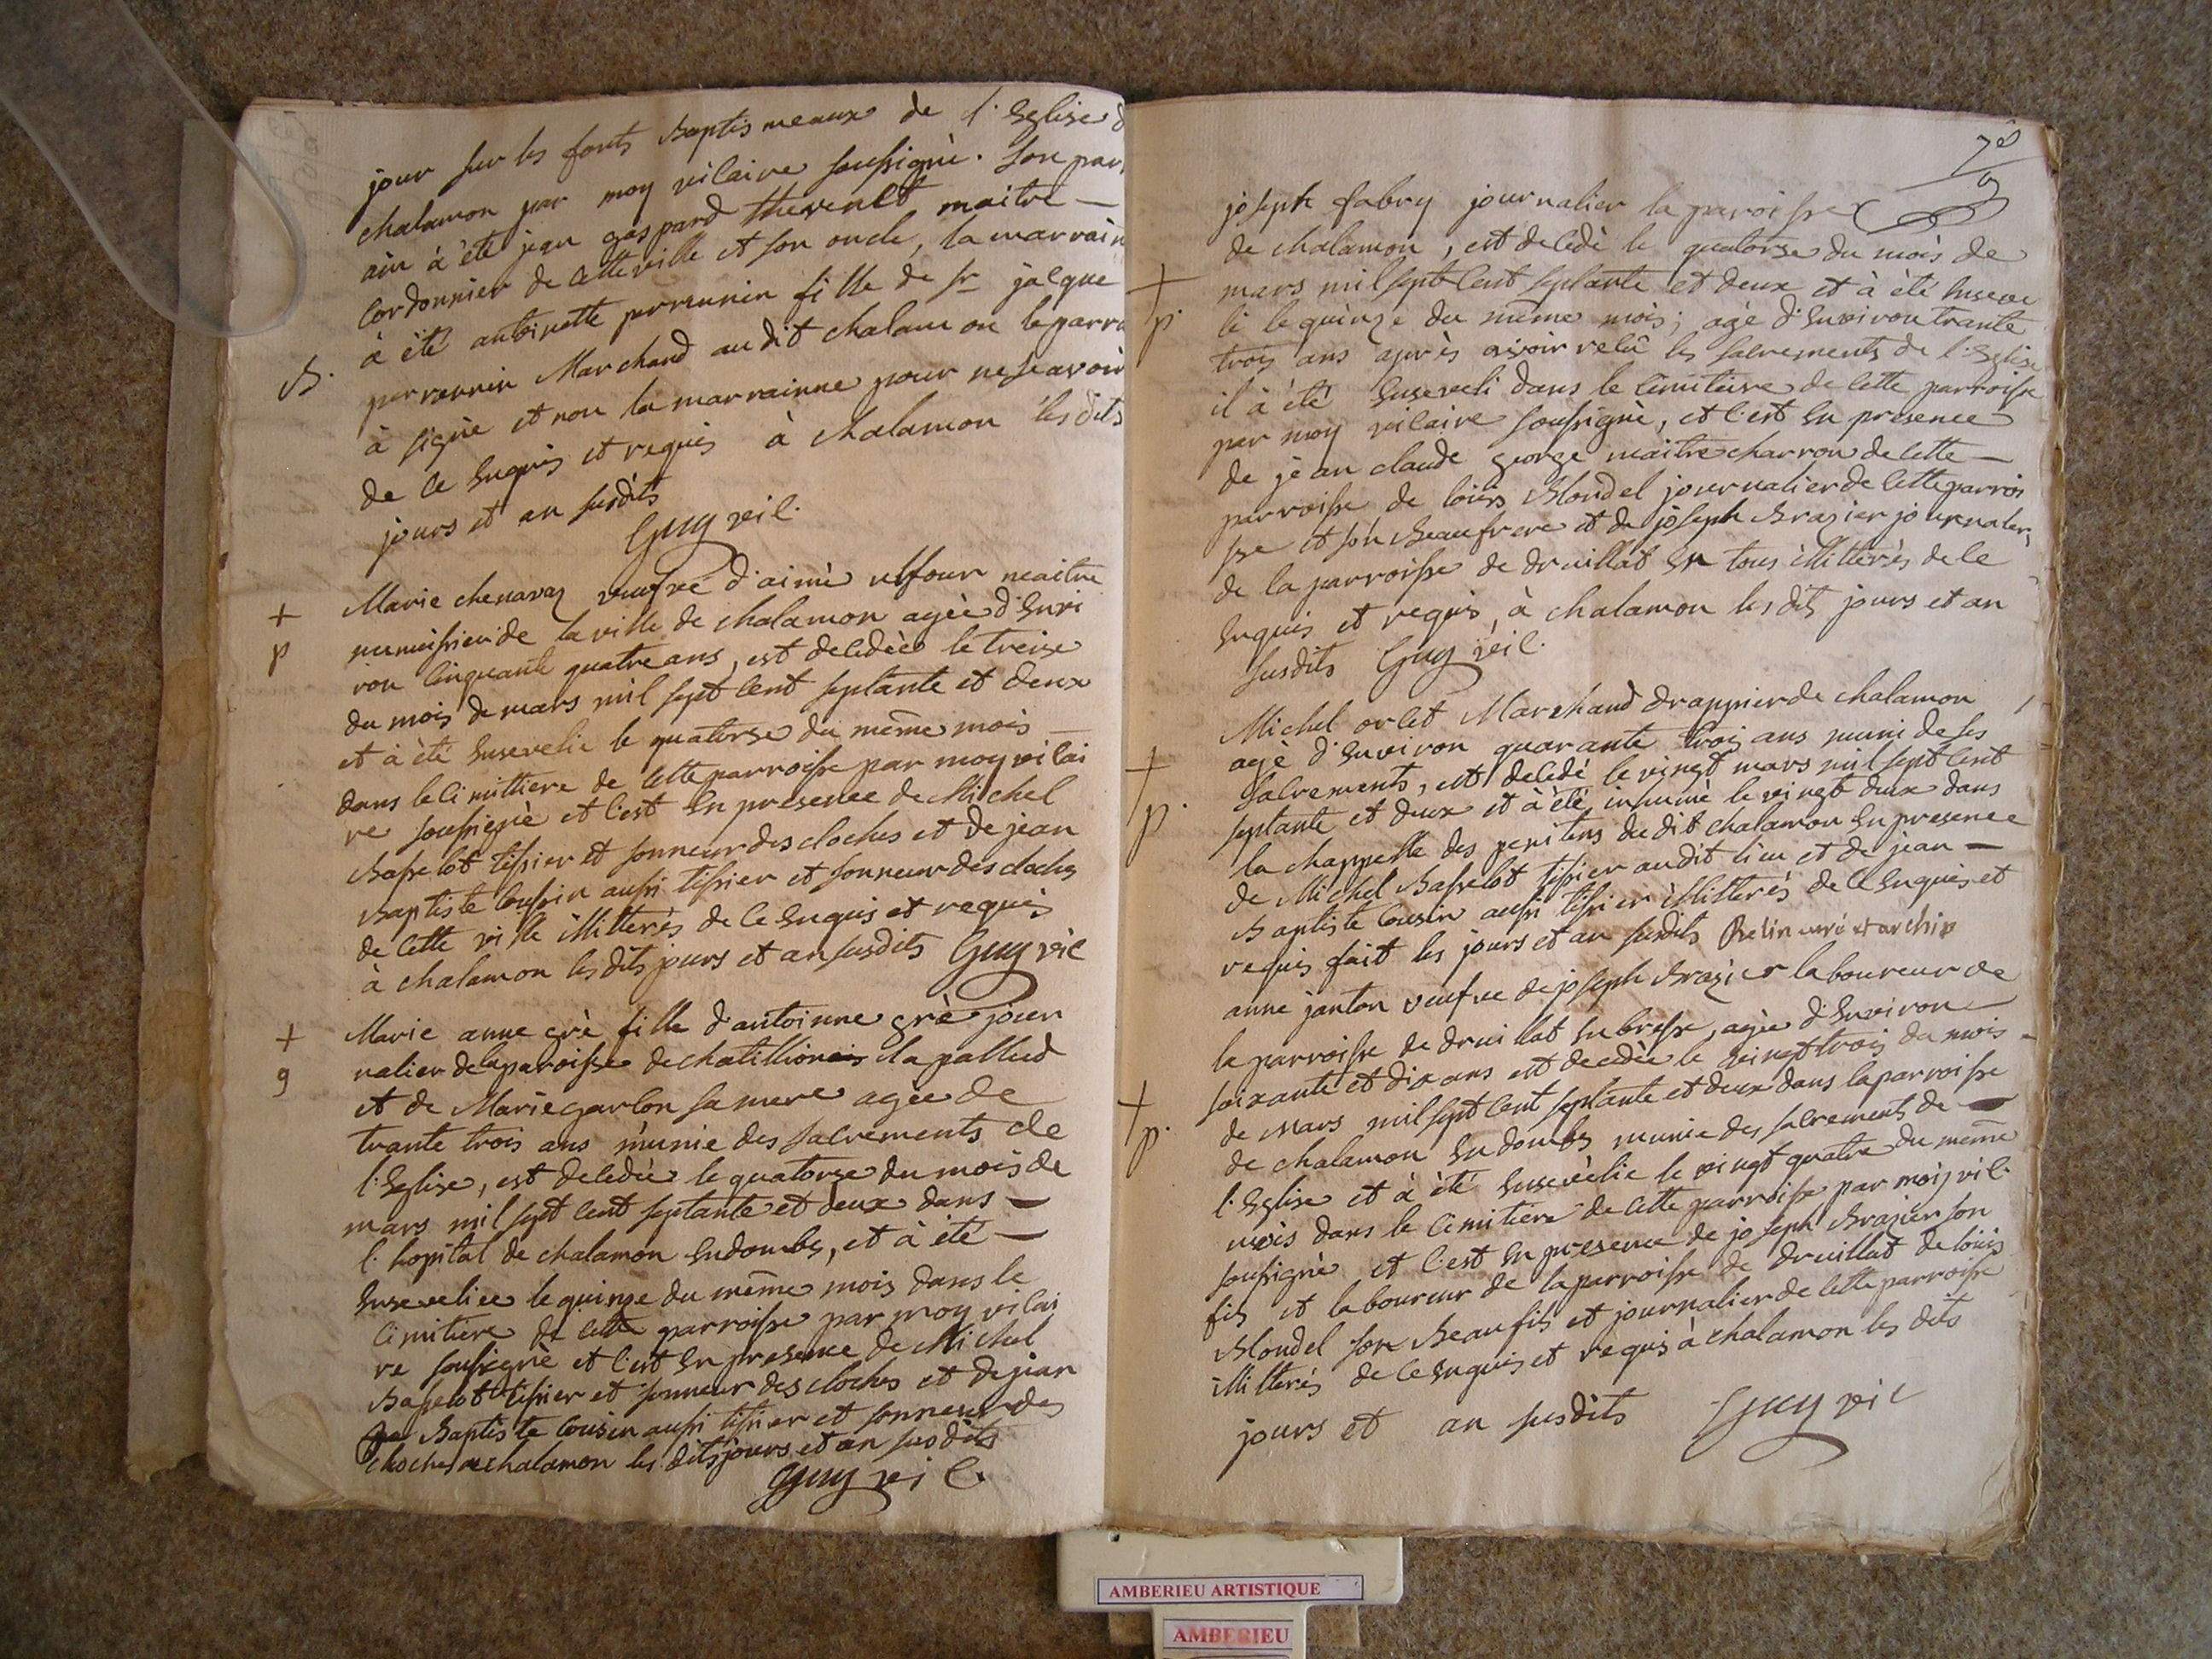 jour sur les fonts Baptismeaux de l'Eglise d
chalamon par moy vicaire soussignè. son par
ain à été jean gaspard thevenet maitre
Cordonnier de cette ville et son oncle, la marrain
à été antoinette perrennin fille de sr jacque
B. perrennin Marchand au dit chalamon le parra
à signè et non la marrainne pour ne sçavoir
de ce enquis et requis à chalamon les dits
jours et an susdits
Guy vic.
+ Marie chenavaz veufve d'aimè
p meunissier de la ville de chalamon agèe d'envi
ron cinquante quatre ans, est decedèe le treize
du mois de mars mil sept cent septante et deux
et à èté ensevelie le quatorse du même mois
dans le cimittiere de cette parroisse par moy vicai
re soussignè et c'est en presence de Michel
Basselot tissier et sonneur des cloches et de jean
Baptiste Cousin aussi tissier et sonneur des cloches
de cette ville illitterès de ce enquis et requis
à chalamon les dits jours et an susdits Guy vic
+ Marie anne grè fille d'antoinne grè jour
g nalier de la paroisse de chatillion la pallud
et de Marie garlon sa mere agèe de
trante trois ans munie des sacrements de
l'Eglise, est decedèe le quatorze du mois de
mars mil sept cent septante et deux dans
l'hopital de chalamon en dombes, et à été
ensevelie le quinze du même mois dans le
cimitiere de cette parroisse par moy vicai
re soussignè et c'est en presence de Michel
Basselot tissier et sonneur des cloches et de jean
Baptiste Cousin aussi tissier et sonneur des
cloches a chalamon les dits jours et an susdits
Guy vic.
7e
joseph fabry journalier la paroisse
de chalamon, est decedè le quatorse du mois de
+ mars mil sept cent septante et deux et à été enseve
p. li le quinze du même mois; agè d'environ trante
trois ans après avoir recû les sacrements de l'Eglise
il à été enseveli dans le cimitiere de cette parroisse
par moy vicaire soussignè, et c'est en presence
de jean claude george maitre charron de cette
parroisse de loüis Blondel journalier de cette parrois
sse et son Beaufrere et de joseph Brazier journalier
de la parroisse de druillat en tous illitterès de ce
enquis et requis, à chalamon les dits jours et an
susdits Guy vic.
Michel orcet Marchand drappier de chalamon
+ agè d'environ quarante trois ans muni de ses
sacrements, est decedé le vingt mars mil sept cent
p. septante et deux et à été inhumè le vingt deux dans
la chappelle des penitens du dit chalamon en presence
de Michel Basselot tissier au dit lieu et de jean
Baptiste Cousin aussi tissier illitterés de ce enquis et
requis fait les jours et an susdits Relin curé et archip
anne janton veufve de joseph Brazier laboureur de
la parroisse de druillat en bresse, agèe d'environ
soixante et dix ans est decedée le vingt trois du mois
+ de Mars mil sept cent septante et deux dans la parroisse
p. de chalamon en dombes munie des sacrements de
l'Eglise et à èté ensevèlie le vingt quatre du meme
mois dans le cimitiere de cette parroisse par moy vic.
soussignè et c'est en presence de joseph Brazier son
fils et laboureur de la parroisse de druillat de loüis
Blondel son Beau fils et journalier de cette parroisse
illitterés de ce enquis et requis à chalamon les dits
jours et an susdits Guy vic
AMBERIEU ARTISTIQUE
AMBERIEU